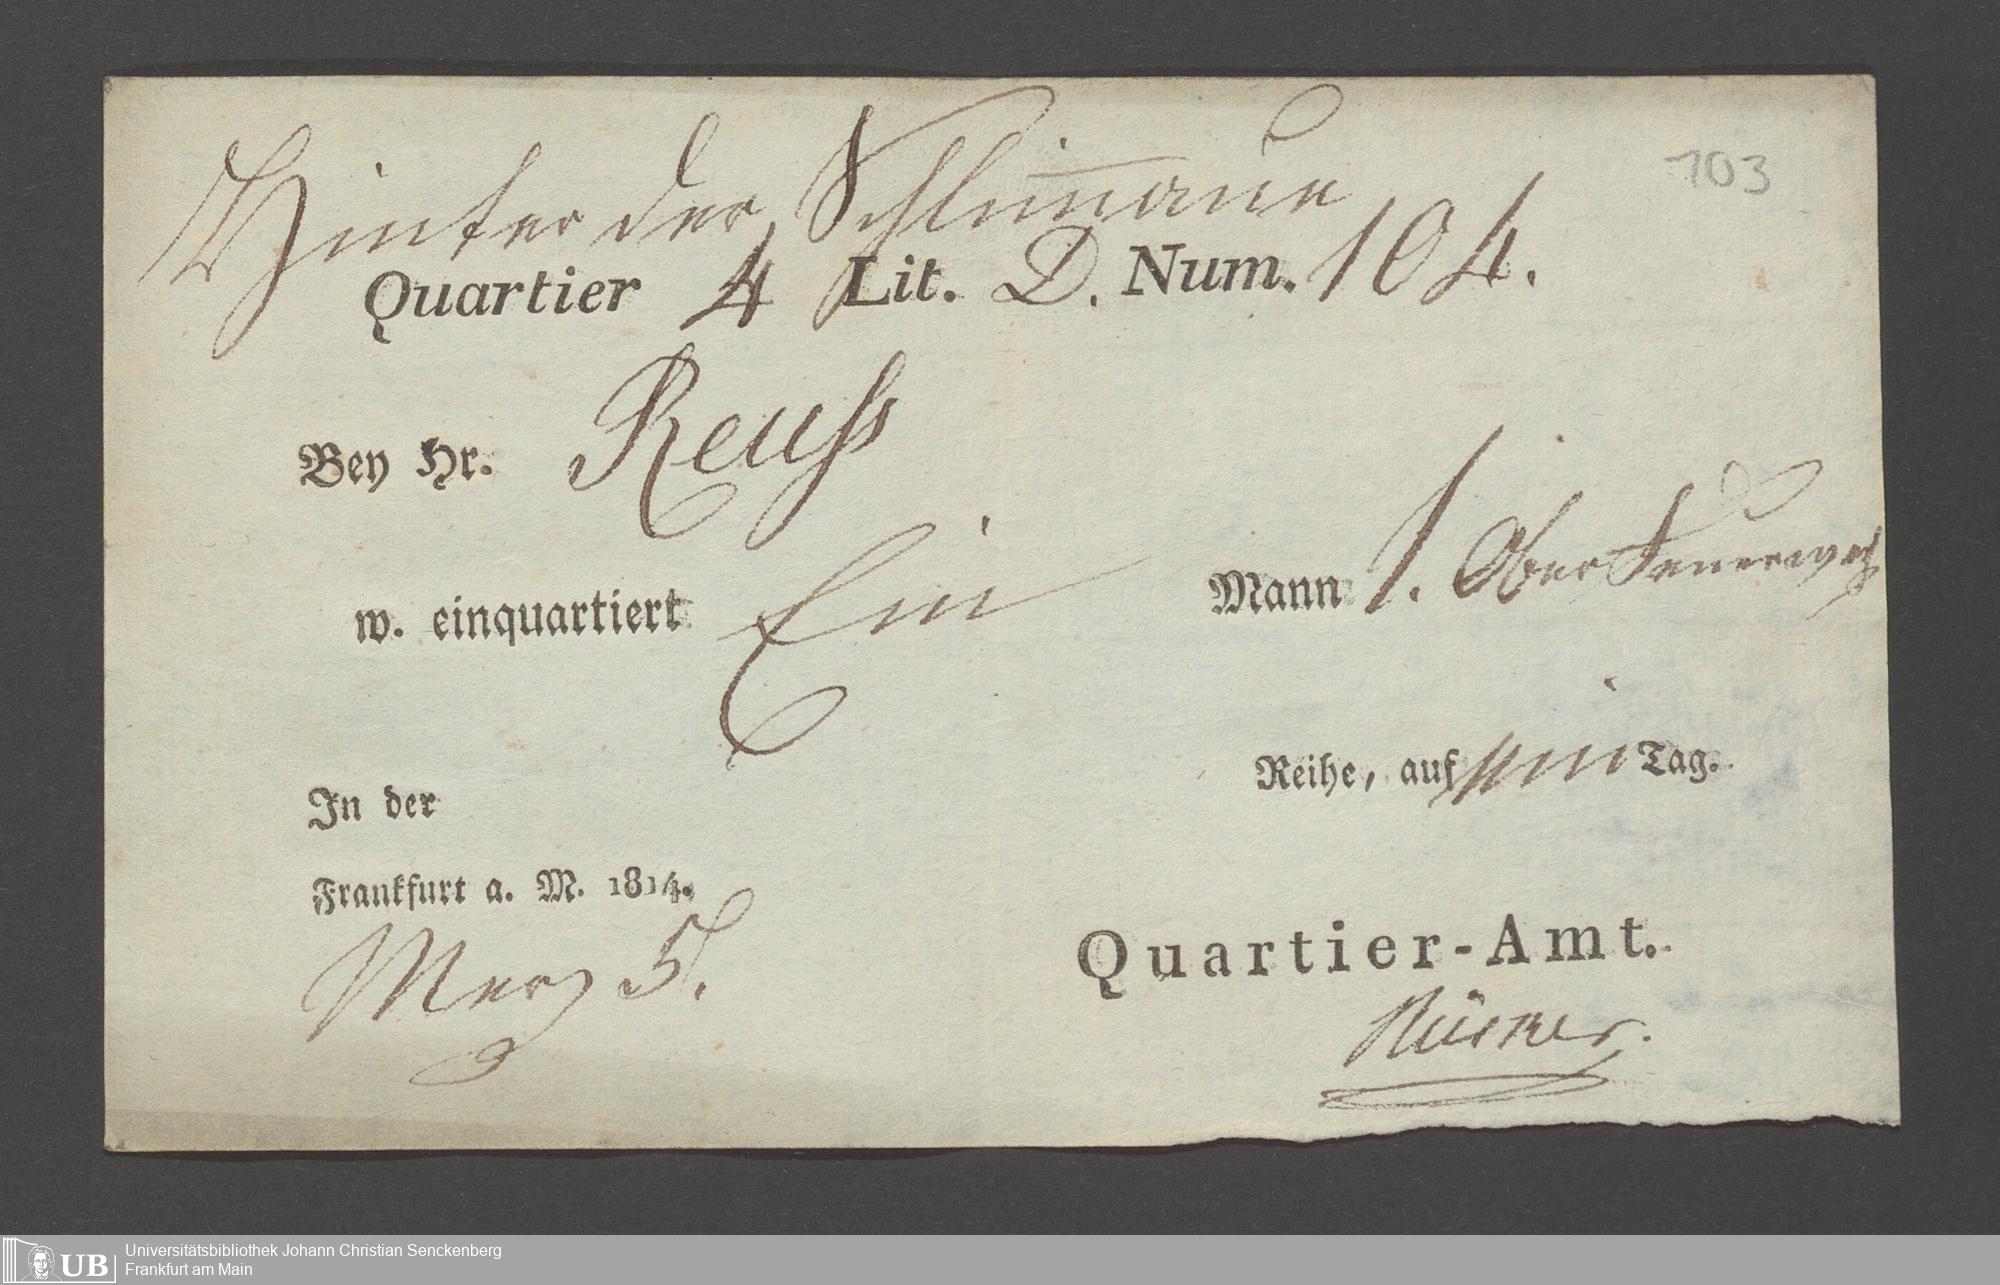 103
Hinter der Schlimmaue
Quartier 4 Lit. D. Num. 104.
Bey Hr. Reuss
w. einquartiert Ein Mann 1. Ober
Reihe, auf ein Tag.
In der
Frankfurt a. M. 1814.
Merz 5.
Quartier-Amt.
UB Universitätsbibliothek Johann Christian Senckenberg
Frankfurt am Main